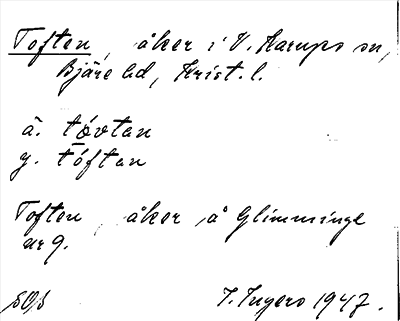 Toften, åker i V. Karups sn,
Bjäre hd, Krist. l.
ä. tóvtan
y. tóftan
Toften, åker å Glimminge
nr 9.
I. Ingers 1947.